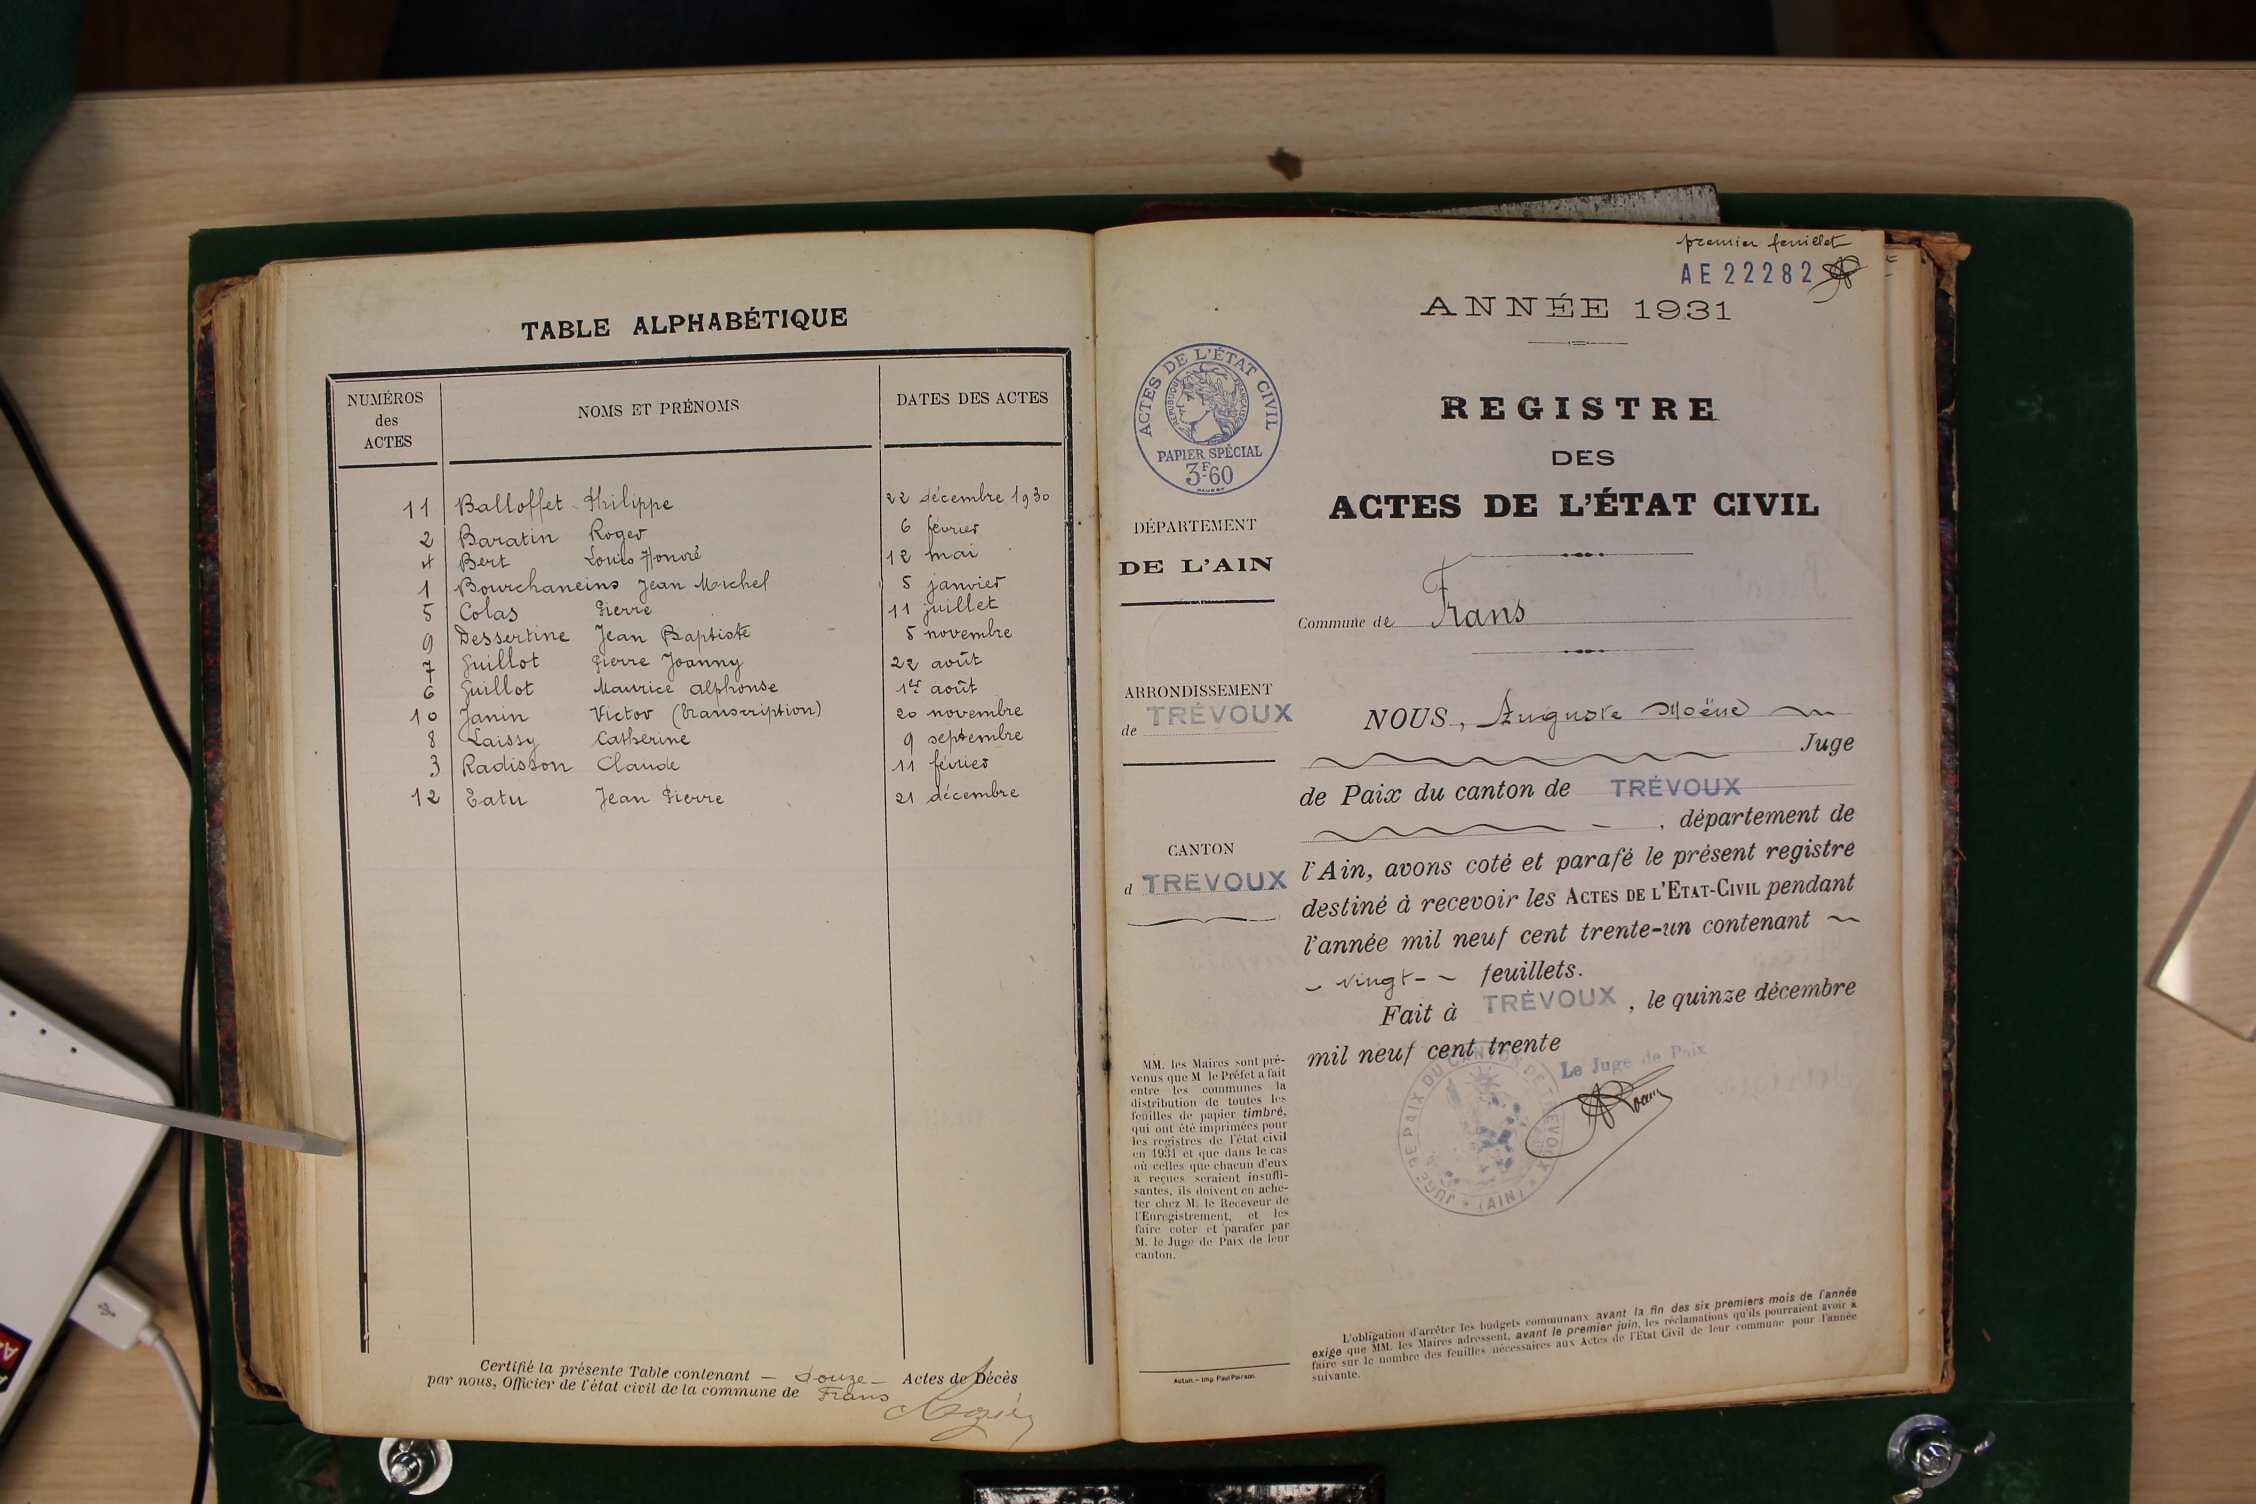 TABLE ALPHABÉTIQUE
NUMÉROS
des
ACTES
NOMS ET PRÉNOMS
DATES DES ACTES
11 Balloffet Philippe 22 décembre 1930
2 Baratin Roger 6 février
4 Bert Louis Honoré 12 mai
1 Bourchaneins Jean Michel 5 janvier
5 Colas Pierre 11 juillet
9 Dessertine Jean Baptiste 5 novembre
7 Guillot Pierre Joanny 22 août
6 Guillot Maurice Alphonse 1er août
10 Janin Victor (transcription) 20 novembre
8 Laissy Catherine 9 septembre
3 Radisson Claude 11 février
12 Tatu Jean Pierre 21 décembre
Certifié la présente Table contenant — douze — Actes de Décès
par nous, Officier de l'état civil de la commune de Frans
premier feuillet
AE 22282
ANNÉE 1931
REGISTRE
DES
ACTES DE L'ÉTAT CIVIL
Commune de Frans
ACTES DE L'ÉTAT CIVIL
RÉPUBLIQUE FRANÇAISE
PAPIER SPÉCIAL
3F60
DÉPARTEMENT
DE L'AIN
ARRONDISSEMENT
de TRÉVOUX
CANTON
d TRÉVOUX
MM. les Maires sont pré-
venus que M le Préfet a fait
entre les communes la
distribution de toutes les
feuilles de papier timbré,
qui ont été imprimées pour
les registres de l'état civil
en 1931 et que dans le cas
où celles que chacun d'eux
a reçues seraient insuffi-
santes, ils doivent en ache-
ter chez M. le Receveur de
l'Enregistrement, et les
faire coter et parafer par
M. le Juge de Paix de leur
canton.
Autun. — Imp. Paul Poirson.
NOUS, Auguste Moëne
Juge
de Paix du canton de TRÉVOUX
, département de
l'Ain, avons coté et parafé le présent registre
destiné à recevoir les ACTES DE L'ETAT-CIVIL pendant
l'année mil neuf cent trente-un contenant
— vingt — feuillets.
Fait à TRÉVOUX, le quinze décembre
mil neuf cent trente
Le Juge de Paix
JUGE DE PAIX DU CANTON DE TRÉVOUX (AIN)
L'obligation d'arrêter les budgets communaux avant la fin des six premiers mois de l'année
exige que MM. les Maires adressent, avant le premier juin, les réclamations qu'ils pourraient avoir à
faire sur le nombre des feuilles nécessaires aux Actes de l'Etat Civil de leur commune pour l'année
suivante.